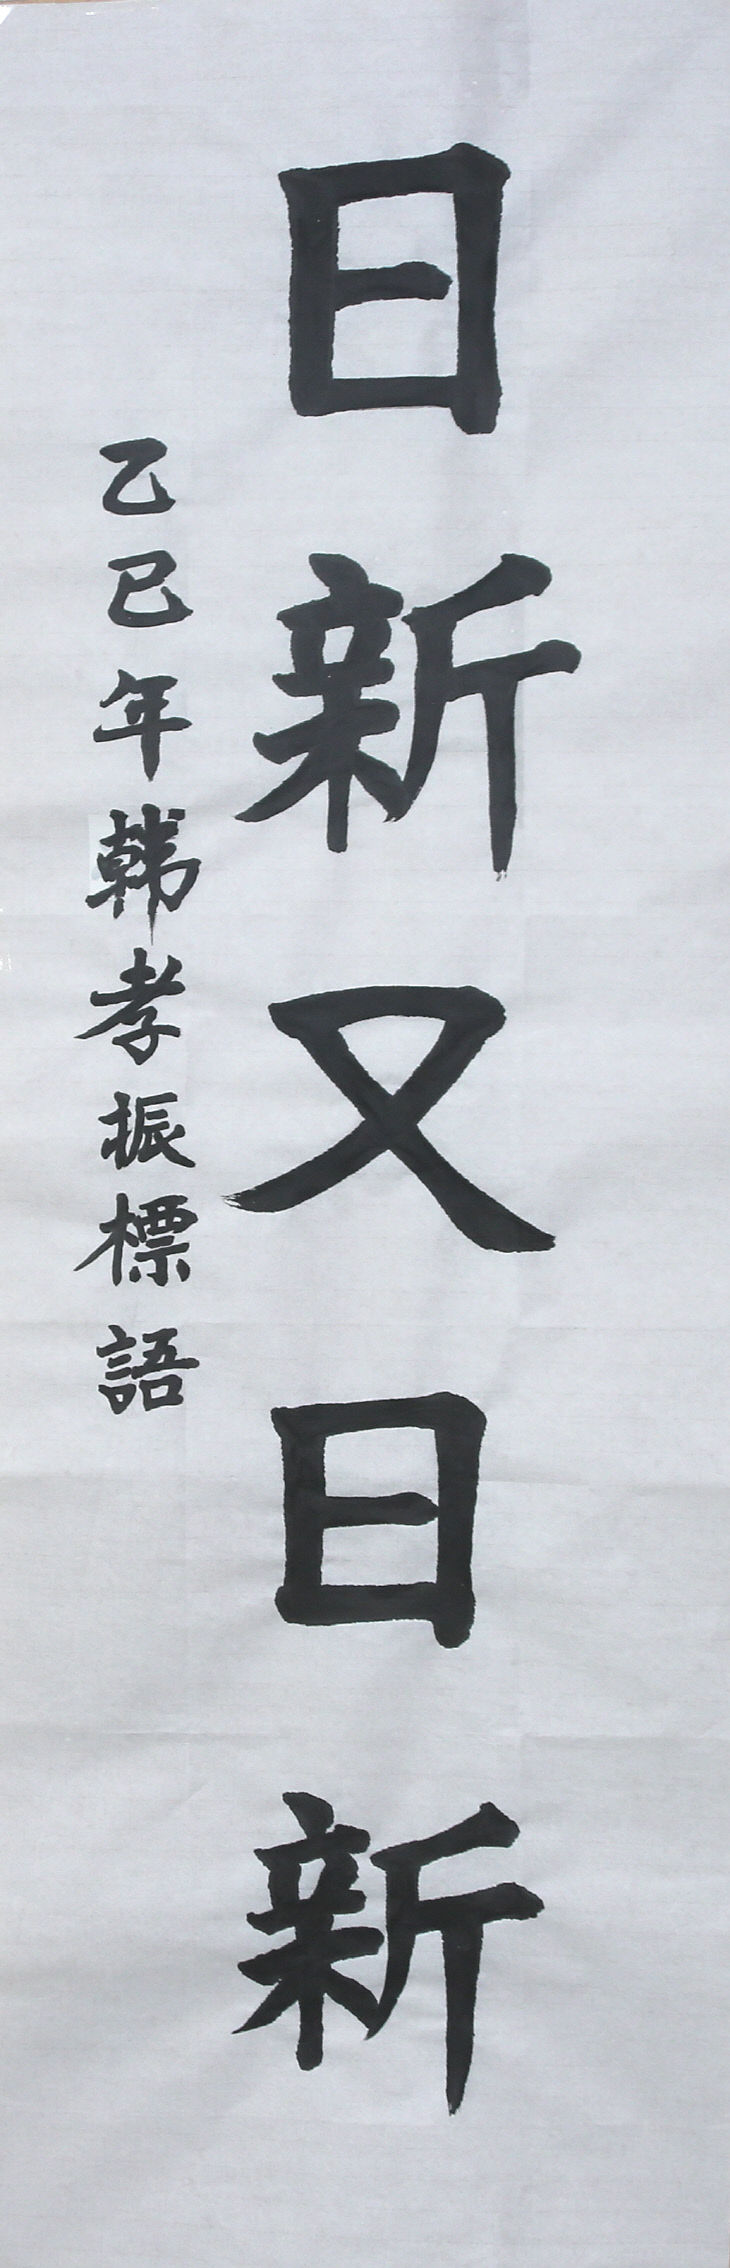 日新又日新
乙巳年韩孝振標語